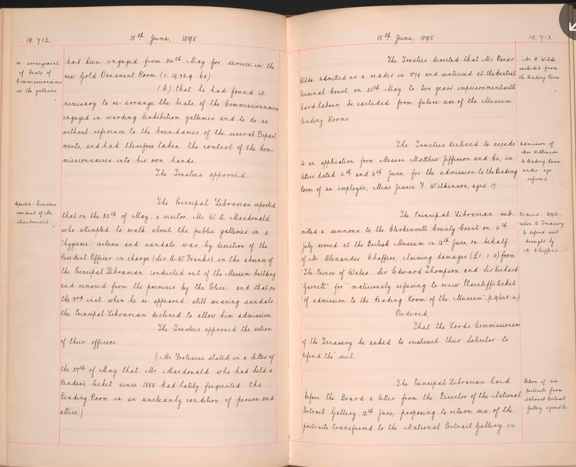 19,712
15th June, 1895
re arrangement
of beats of
Commissionaires
in the galleries
had been engaged from 20th May for service in the
new Gold Ornament Room
(b) that he had found it
necessary to re-arrange the beats of the Commissionaires
engaged in warding Exhibition galleries and to do so
without reference to the boundaries of the several Depart-
ments, and had therefore taken the control of the Com-
missionaires into his own hands.
The Trustees approved.
conduct of Mr
Macdonald.
The Principal Librarian reported
that on the 28th of May, a visitor, Mr. W. A. Macdonald
who attempted to walk about the public galleries in a
"hygienic" costume and sandals was by direction of the
Resident Officer in charge (Sir A. W. Franks) on the absence of
the Principal Librarian conducted out of the Museum building
and removed from the premises by the Police, and that on
the 3rd inst. when he re-appeared, still wearing sandals
the Principal Librarian declined to allow him admission.
The Trustees approved the action
of their officers.
(Mr. Fortescue stated in a letter of
the 29th of May that Mr. Macdonald who had held a
Reader's ticket since 1888 had lately frequented the
Reading Room in an uncleanly condition of person and
attire.)
15th June, 1895
19,713
The Trustees directed that Mr. Oscar
Wilde admitted as a reader in 1879 and sentenced at the Central
Criminal Court on 25th May to two years imprisonment with
hard labour, be excluded from future use of the Museum
Reading Room.
Mr. O. Wilde
excluded from
the Reading Room
The Trustees declined to accede
to an application from Messrs. Matthew Jefferson and Co, in
letters dated 4th and 6th June, for the admission to the Reading
Room of an employée, Miss Jessie F. Wilkinson, aged 19.
Admission of
Miss Wilkinson
to Reading Room
under age
refused.
The Principal Librarian sub-
mitted a summons to the Clerkenwell County Court on
July served at the British Museum on 12th June on behalf
of Mr. Alexander Chaffers, claiming damages from
"The Prince of Wales, Sir Edward Thompson and Sir Richard
Garnett" for "maliciously refusing to renew Plaintiff's ticket
of admission to the Reading Room of the Museum"
Ordered,
That the Lords Commissioners
of the Treasury be asked to instruct their Solicitor to
defend the suit.
to defend suit
brought by
Mr. Chaffers
The Principal Librarian laid
before the Board a letter from the Director of the National
Portrait Gallery, 12th June, proposing to return six of the
portraits transferred to the National Portrait Gallery, in
Return of six
portraits from
National Portrait
Gallery